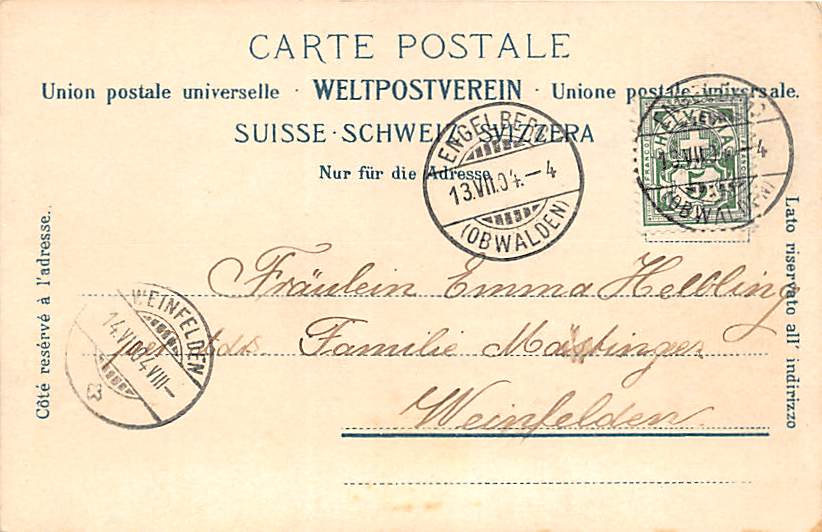 CARTE POSTALE
Union postale universelle · WELTPOSTVEREIN · Unione postale universale.
SUISSE · SCHWEIZ · SVIZZERA
Nur für die Adresse
ENGELBERG
13.VII.04.–4
(OBWALDEN)
HELVETIA
FRANCO
ENGELBERG
13.VII.04.–4
(OBWALDEN)
Côté resérvé à l'adresse.
Lato riservato all' indirizzo
WEINFELDEN
14.VII.04.VIII–
Fräulein Emma Helbling
per adr. Familie
Weinfelden.